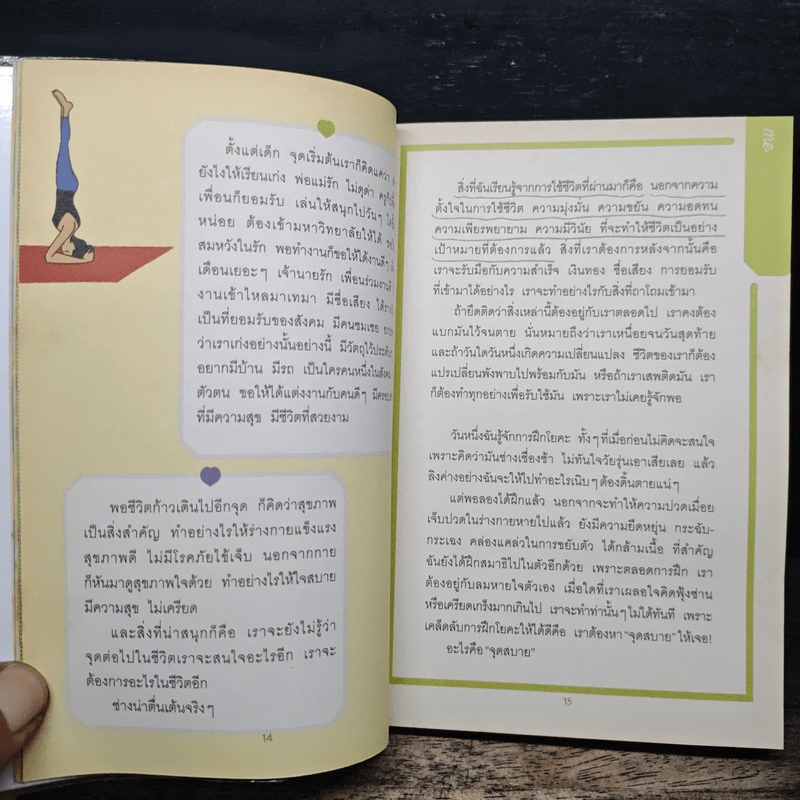 ตั้งแต่เด็ก จุดเริ่มต้นเราก็คิดแค่ว่า
ยังไงให้เรียนเก่ง พ่อแม่รัก ไม่ดุด่า ครู
เพื่อนก็ยอมรับ เล่นให้สนุกไปวันๆ
หน่อย ต้องเข้ามหาวิทยาลัยให้ได้
สมหวังในรัก พอทำงานก็ขอให้ได้งานดีๆ
เดือนเยอะๆ เจ้านายรัก เพื่อนร่วมงานดี
งานเข้าไหลมาเทมา มีชื่อเสียง
เป็นที่ยอมรับของสังคม มีคนชมเชย
ว่าเราเก่งอย่างนั้นอย่างนี้ มีวัตถุไว้
อยากมีบ้าน มีรถ เป็นใครคนหนึ่งในสังคม
ตัวตน ขอให้ได้แต่งงานกับคนดีๆ
ที่มีความสุข มีชีวิตที่สวยงาม
พอชีวิตก้าวเดินไปอีกจุด ก็คิดว่าสุขภาพ
เป็นสิ่งสำคัญ ทำอย่างไรให้ร่างกายแข็งแรง
สุขภาพดี ไม่มีโรคภัยไข้เจ็บ นอกจากกาย
ก็หันมาดูสุขภาพใจด้วย ทำอย่างไรให้ใจสบาย
มีความสุข ไม่เครียด
และสิ่งที่น่าสนุกก็คือ เราจะยังไม่รู้ว่า
จุดต่อไปในชีวิตเราจะสนใจอะไรอีก เราจะ
ต้องการอะไรในชีวิตอีก
ช่างน่าตื่นเต้นจริงๆ
14
me
สิ่งที่ฉันเรียนรู้จากการใช้ชีวิตที่ผ่านมาก็คือ นอกจากความ
ตั้งใจในการใช้ชีวิต ความมุ่งมั่น ความขยัน ความอดทน
ความเพียรพยายาม ความมีวินัย ที่จะทำให้ชีวิตเป็นอย่าง
เป้าหมายที่ต้องการแล้ว สิ่งที่เราต้องการหลังจากนั้นคือ
เราจะรับมือกับความสำเร็จ เงินทอง ชื่อเสียง การยอมรับ
ที่เข้ามาได้อย่างไร เราจะทำอย่างไรกับสิ่งที่ถาโถมเข้ามา
ถ้ายึดติดว่าสิ่งเหล่านี้ต้องอยู่กับเราตลอดไป เราคงต้อง
แบกมันไว้จนตาย นั่นหมายถึงว่าเราเหนื่อยจนวันสุดท้าย
และถ้าวันใดวันหนึ่งเกิดความเปลี่ยนแปลง ชีวิตของเราก็ต้อง
แปรเปลี่ยนพังพาบไปพร้อมกับมัน หรือถ้าเราเสพติดมัน เรา
ก็ต้องทำทุกอย่างเพื่อรับใช้มัน เพราะเราไม่เคยรู้จักพอ
วันหนึ่งฉันรู้จักการฝึกโยคะ ทั้งๆ ที่เมื่อก่อนไม่คิดจะสนใจ
เพราะคิดว่ามันช่างเชื่องช้า ไม่ทันใจวัยรุ่นเอาเสียเลย แล้ว
ลิงค่างอย่างฉันจะให้ไปทำอะไรเนิบๆ ต้องดิ้นตายแน่ๆ
แต่พอลองได้ฝึกแล้ว นอกจากจะทำให้ความปวดเมื่อย
เจ็บปวดในร่างกายหายไปแล้ว ยังมีความยืดหยุ่น กระฉับ-
กระเฉง คล่องแคล่วในการขยับตัว ได้กล้ามเนื้อ ที่สำคัญ
ฉันยังได้ฝึกสมาธิไปในตัวอีกด้วย เพราะตลอดการฝึก เรา
ต้องอยู่กับลมหายใจตัวเอง เมื่อใดที่เราเผลอใจคิดฟุ้งซ่าน
หรือเครียดเกร็งมากเกินไป เราจะทำท่านั้นๆ ไม่ได้ทันที เพราะ
เคล็ดลับการฝึกโยคะให้ได้ดีคือ เราต้องหา “จุดสบาย” ให้เจอ!
อะไรคือ “จุดสบาย”
15